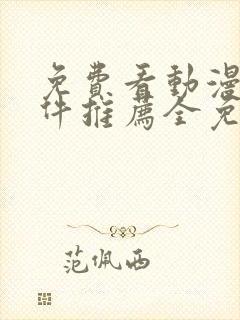 免費看動漫
件推薦全免
范佩西